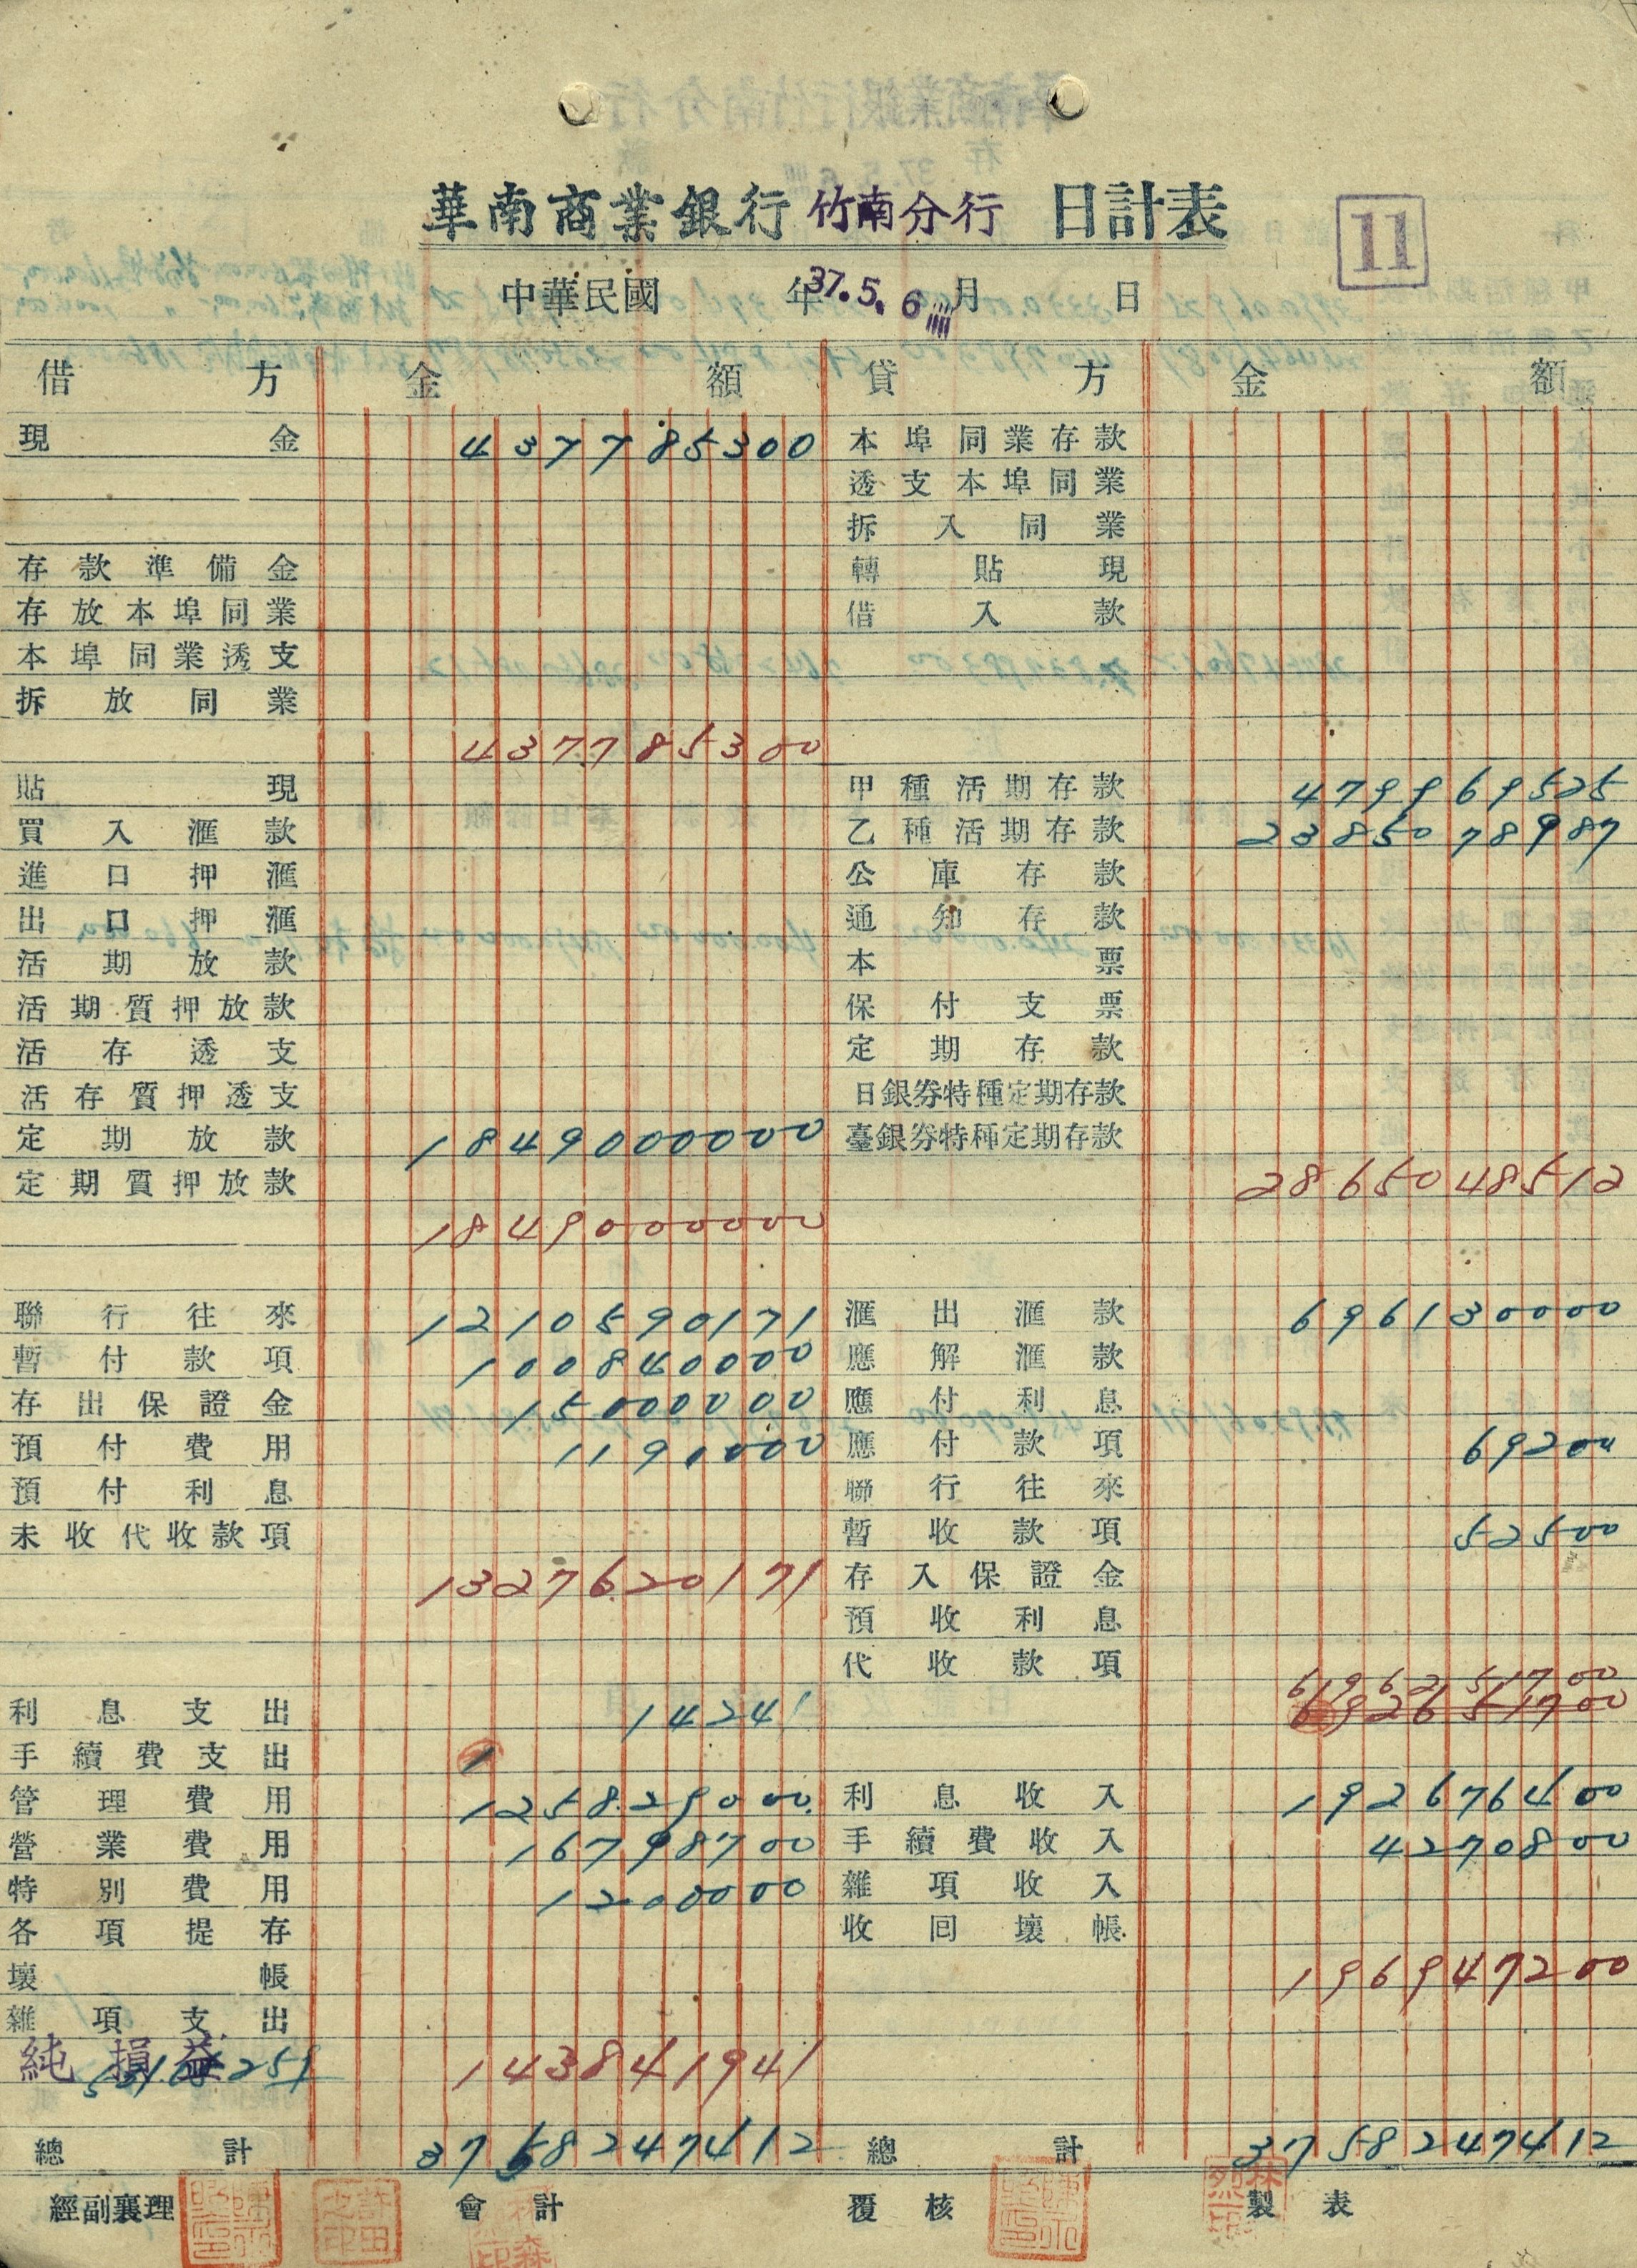 華南商業銀行 竹南分行 日計表
11
中華民國 年 37.5.6 月 日
借方 金額 貸方 金額
現金 437785300 本埠同業存款
透支本埠同業
拆入同業
存款準備金 轉貼現
存放本埠同業 借入款
本埠同業透支
拆放同業
437785300
貼現 甲種活期存款 479969525
買入滙款 乙種活期存款 2385078987
進口押滙 公庫存款
出口押滙 通知存款
活期放款 本票
活期質押放款 保付支票
活存透支 定期存款
活存質押透支 日銀券特種定期存款
定期放款 1849000000 臺銀券特種定期存款
定期質押放款 2865048512
1849000000
聯行往來 1210590171 滙出滙款 696130000
暫付款項 100840000 應解滙款
存出保證金 15000000 應付利息
預付費用 1190000 應付款項 69200
預付利息 聯行往來
未收代收款項 暫收款項 52500
1327620171 存入保證金
預收利息
代收款項
696251700
利息支出 14241 692651700
手續費支出 1
管理費用 125829000 利息收入 192676400
營業費用 16798700 手續費收入 4270800
特別費用 1200000 雜項收入
各項提存 收回壞帳
壞帳 196947200
雜項支出
純損益 53105259 143841941
總計 3758247412 總計 3758247412
經副襄理 會計 覆核 製表